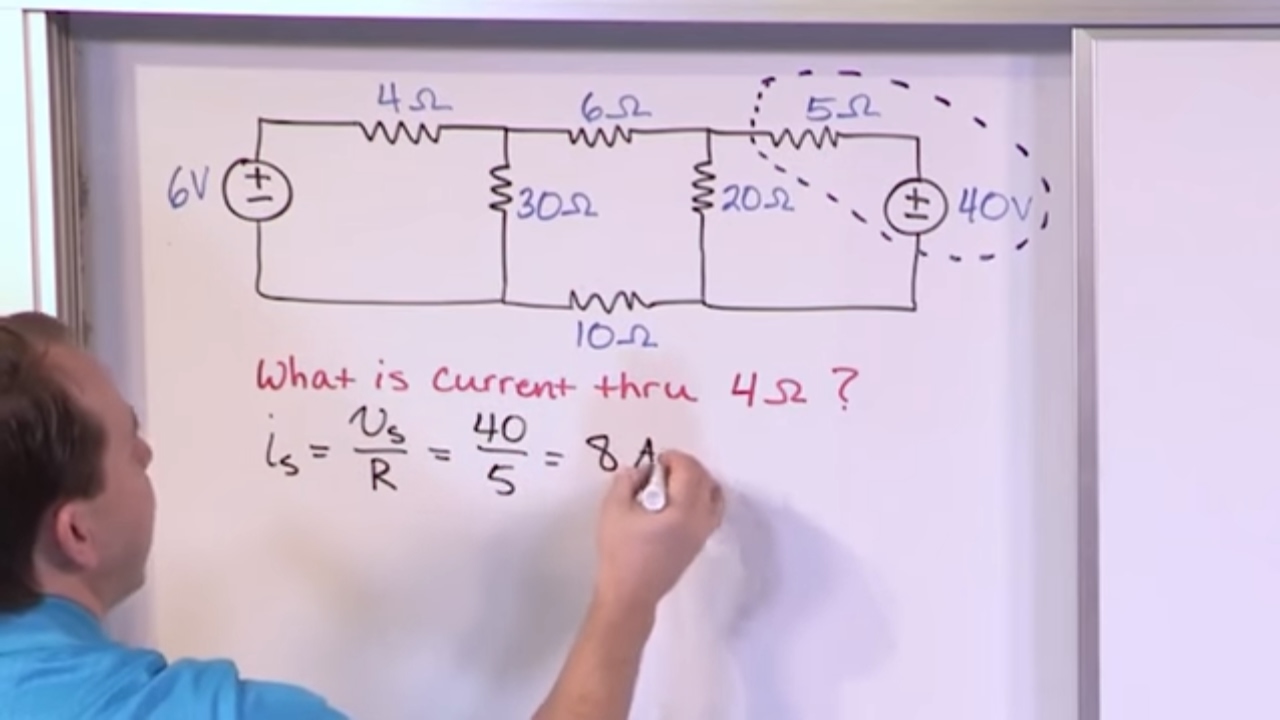 4Ω 6Ω 5Ω
6V + − 30Ω 20Ω + − 40V
10Ω
What is current thru 4Ω ?
is = Vs/R = 40/5 = 8 A